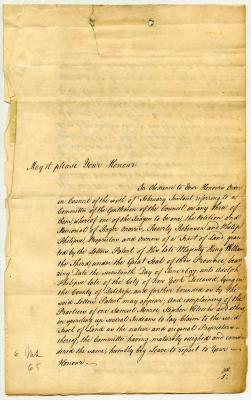 May it please Your Honour
In Obedience to Your Honours Order
in Council of the 20th of February Instant referring to a
Committee of the Gentlemen of the Council, or any three of
them whereof one of the Judges to be one, the Petition and
Memorial of Roger Morris, Beverly Robinson and Philip
Philipse, Proprietors and owners of a Tract of Land gran-
ted by the Letters Patent of His late Majesty King William
the Third, under the Great Seal of this Province bear-
ing Date the seventeenth Day of June 1697, unto Adolph
Philipse late of the City of New York Deceased, lying in
the County of Dutchess, and further bounded as by the
said Letters Patent may appear, and complaining of the
Practices of one Samuel Monroe, Stephen and others,
in spiriting up several Indians to lay claim to the said
Tract of Land as the native and original Proprietors
thereof; this Committee having maturely weighed and consi-
dered the same, humbly beg leave to report to Your
Honour